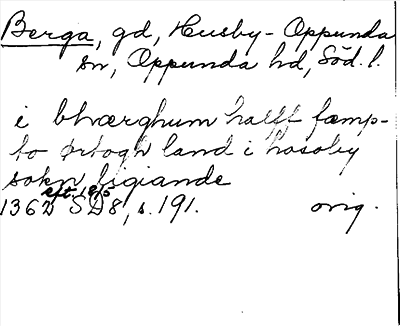 Berga, gd, Husby-Oppunda
sn, Oppunda hd, Söd. l.
i bhærghum halff fæmp-
to ørtogh land i hosaby
sokn ligiande
eft. 1815
1362 SD8, s. 191. orig.